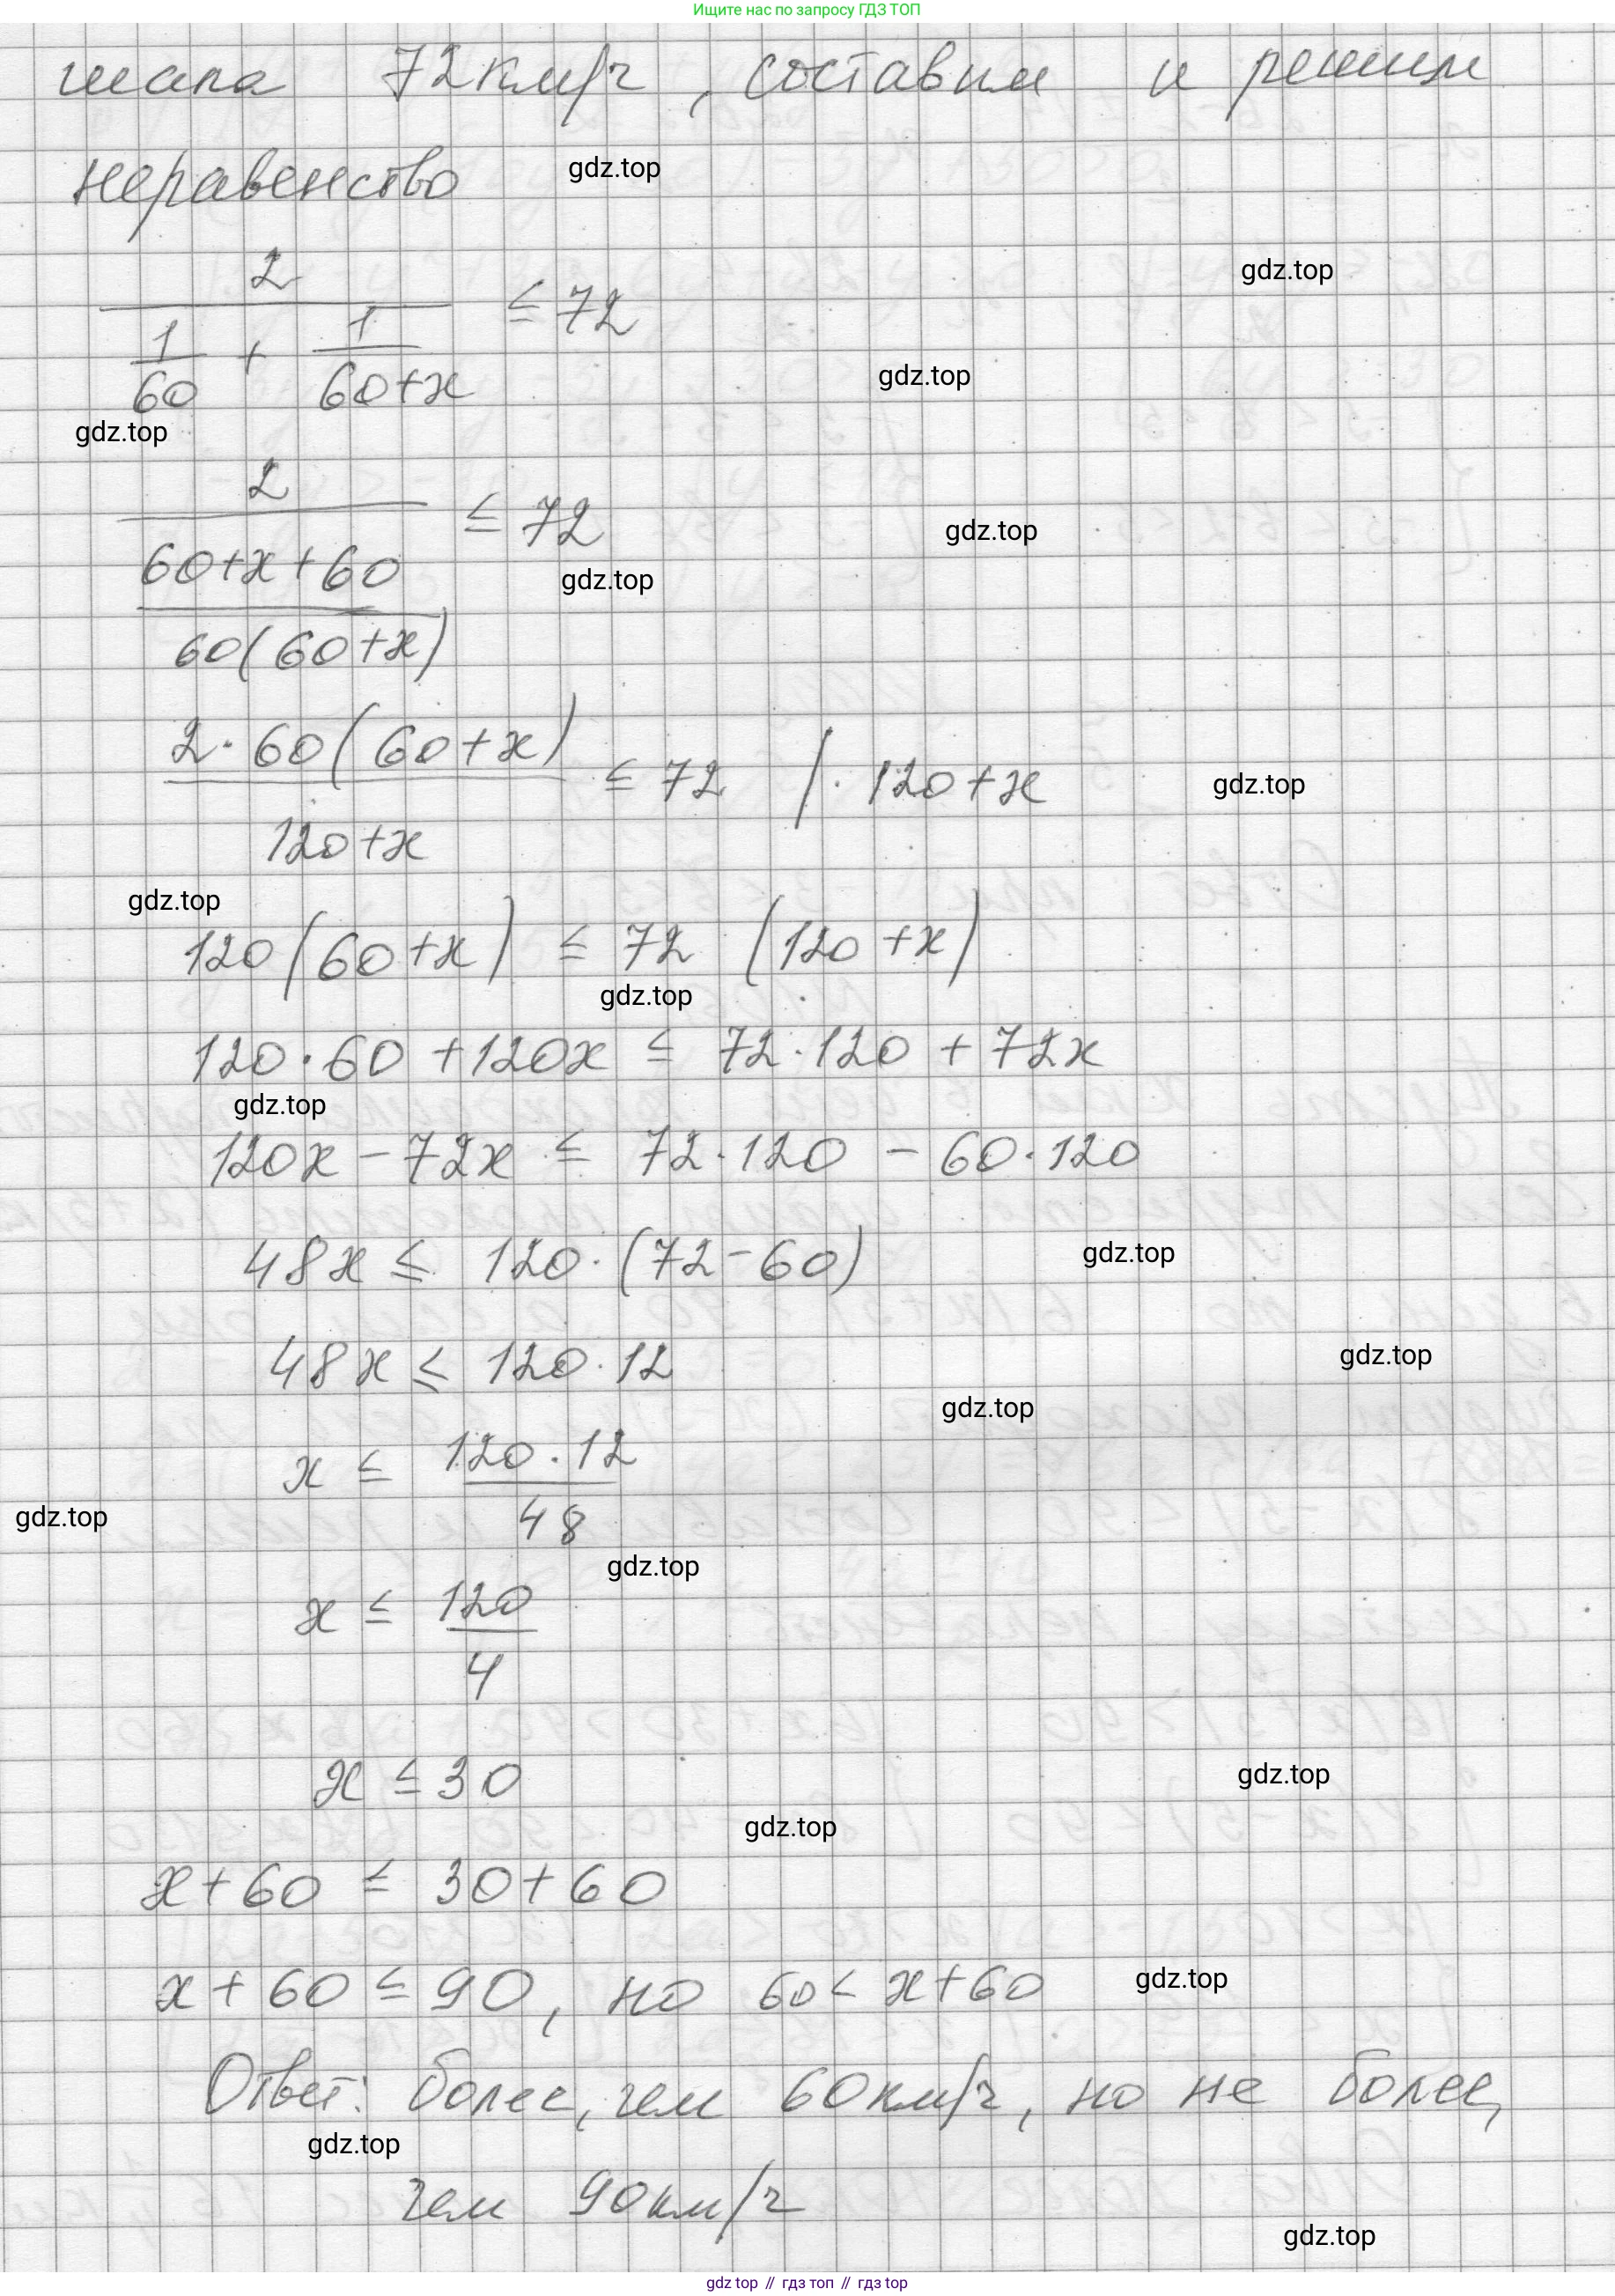 Ищите нас по запросу ГДЗ ТОП
шала 72 км/ч, составим и решим
неравенство
gdz.top
2 / (1/60 + 1/(60+x)) ≤ 72
gdz.top
gdz.top
gdz.top
2 / ((60+x+60) / (60(60+x))) ≤ 72
gdz.top
gdz.top
2·60(60+x) / (120+x) ≤ 72 | · 120+x
gdz.top
gdz.top
120(60+x) ≤ 72 (120+x)
gdz.top
120·60 + 120x ≤ 72·120 + 72x
gdz.top
120x − 72x ≤ 72·120 − 60·120
48x ≤ 120·(72−60)
gdz.top
48x ≤ 120·12
gdz.top
gdz.top
x ≤ 120·12 / 48
gdz.top
gdz.top
x ≤ 120 / 4
x ≤ 30
gdz.top
gdz.top
x+60 ≤ 30+60
x+60 ≤ 90, но 60 < x+60
gdz.top
Ответ: более, чем 60 км/ч, но не более,
gdz.top
чем 90 км/ч
gdz.top
gdz top // гдз топ // гдз top